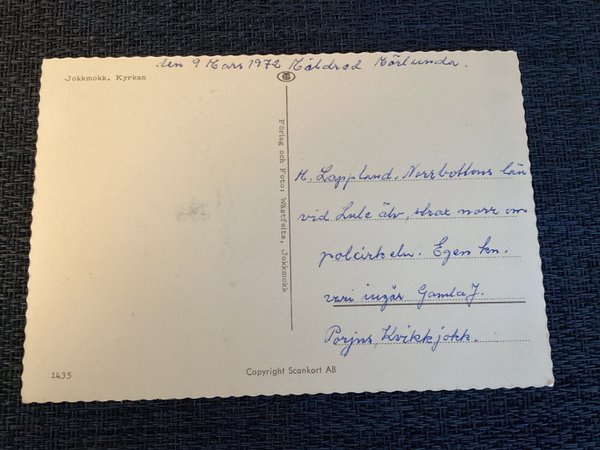 den 9 Mars 1972 Måldrod Mörlunda.
Jokkmokk. Kyrkan
Förlag och Foto: Wästfelts, Jokkmokk
K. Lappland. Norrbottens län
vid Lule älv, strax norr om
polcirkeln. Egen kn.
vari ingår Gamla J.
Porjus, Kvikkjokk.
1435
Copyright Scankort AB